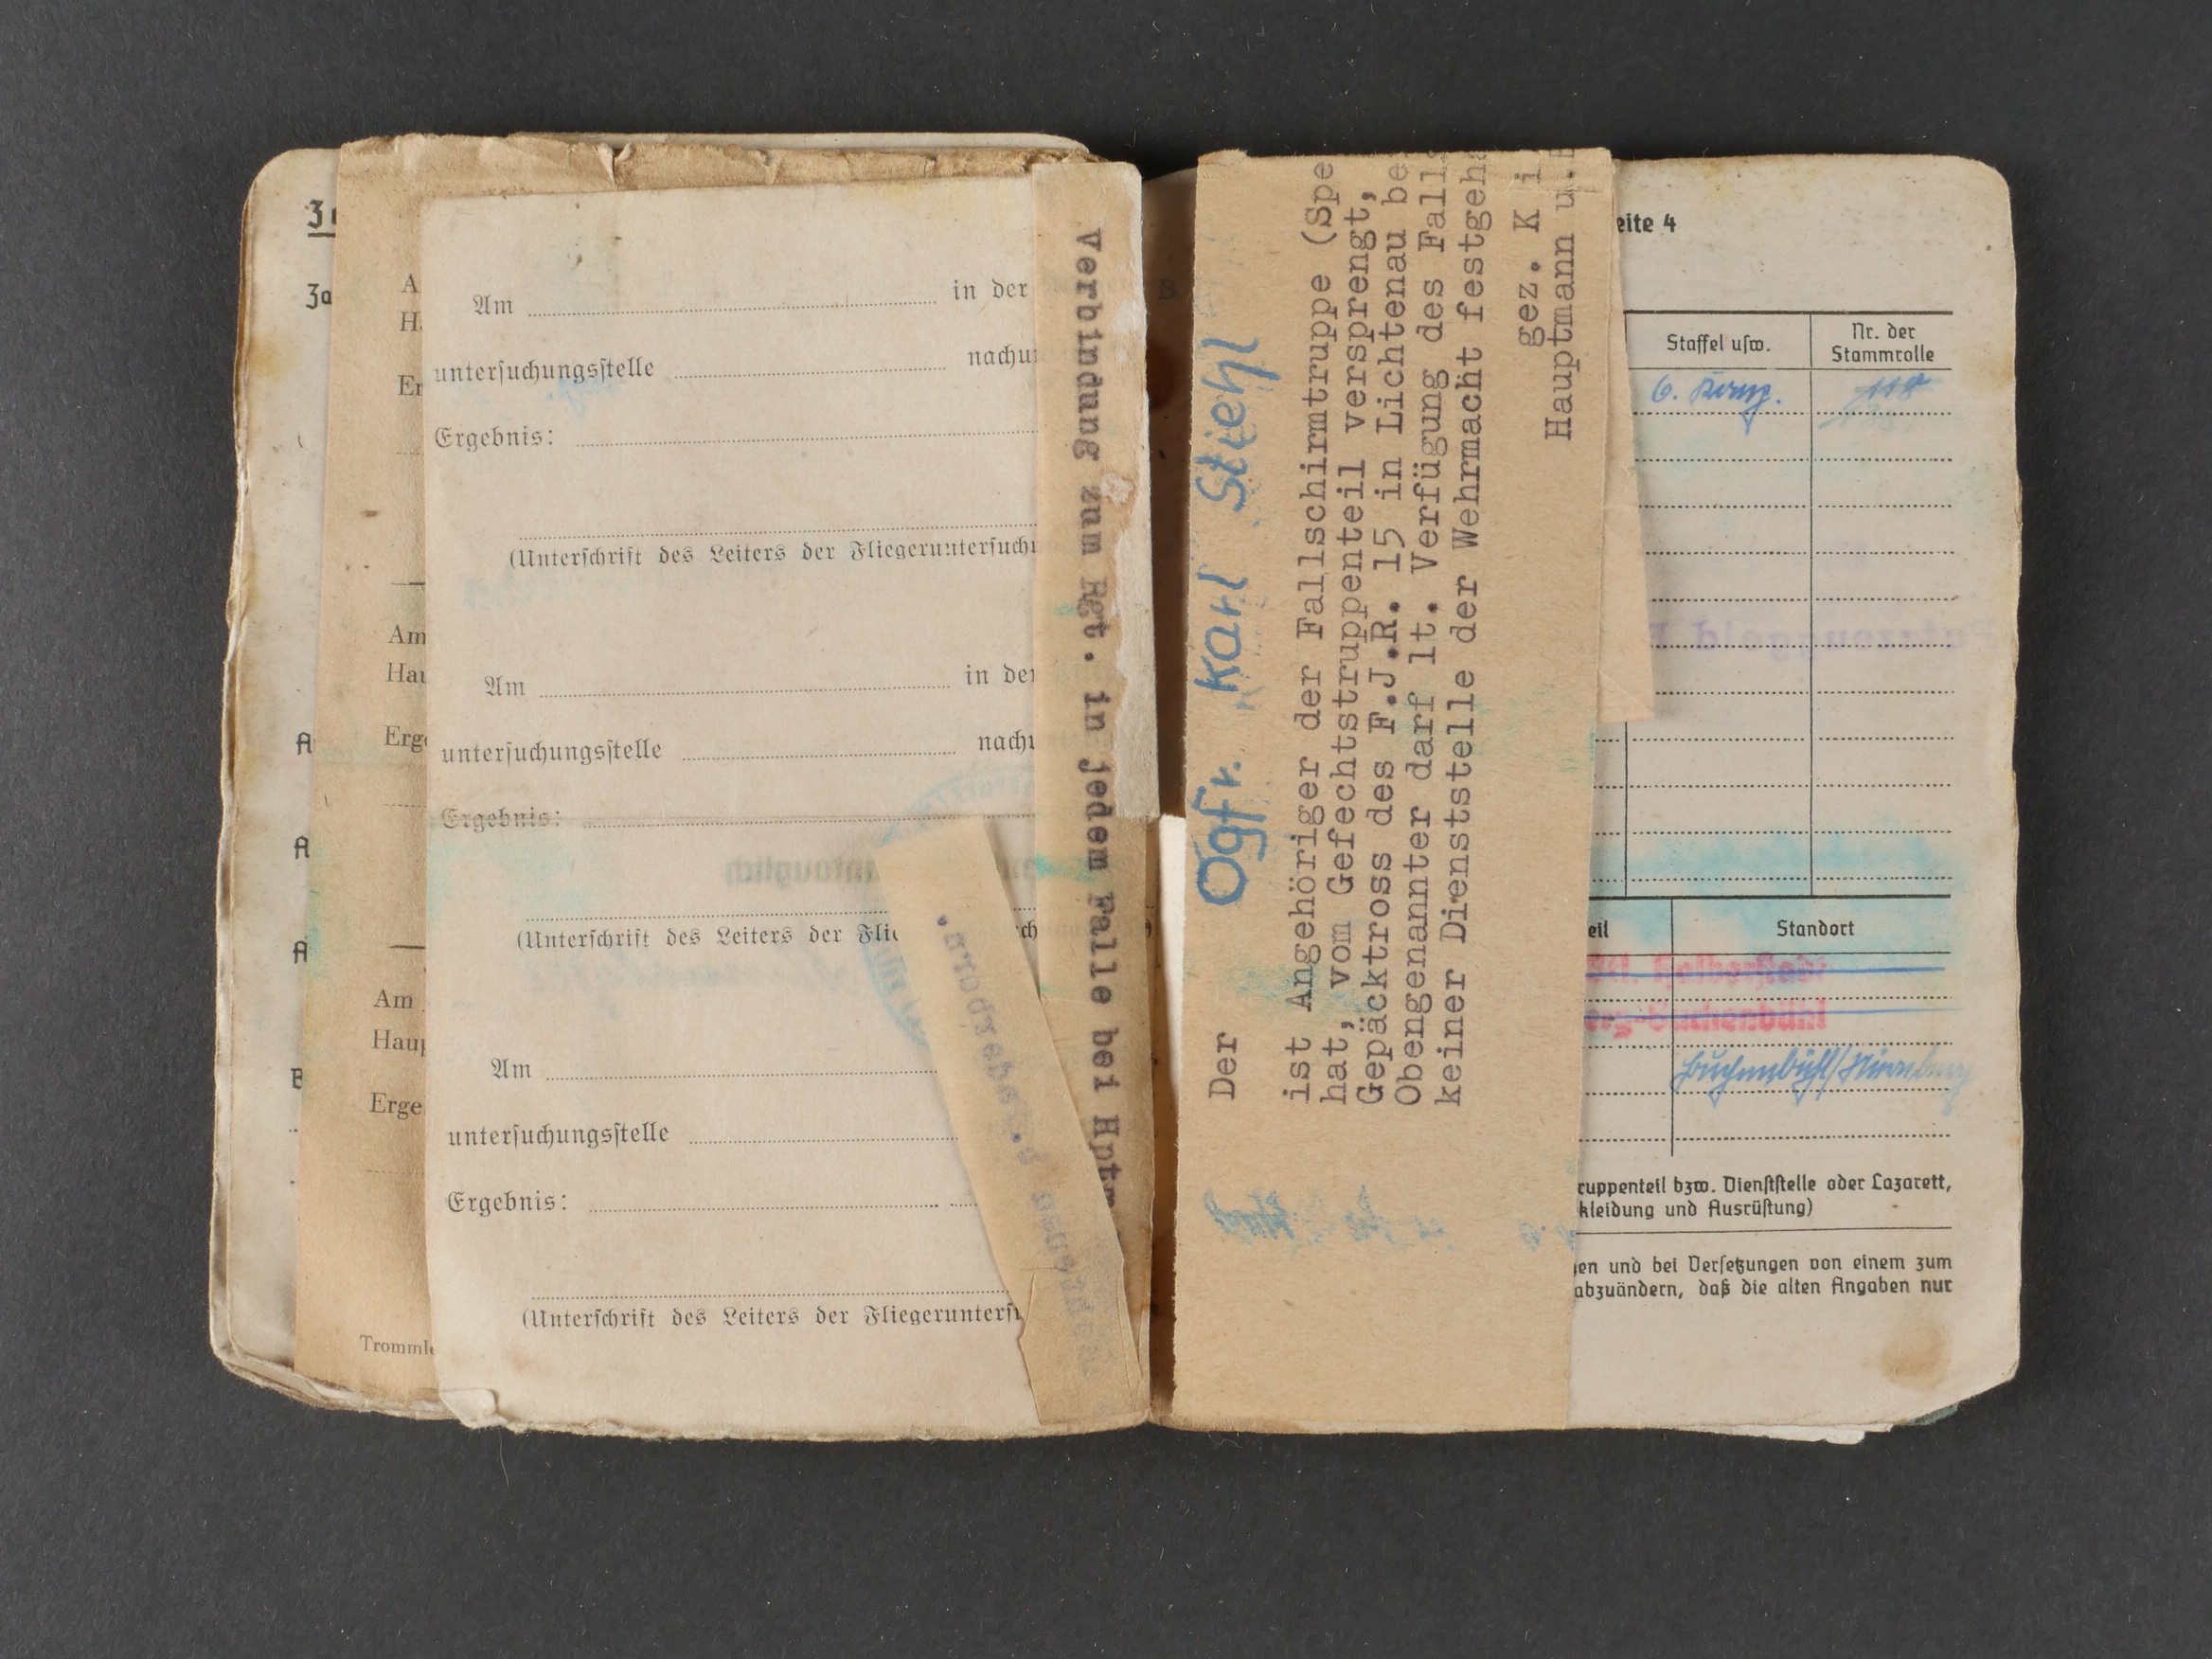 Am in der
untersuchungsstelle nachu
Ergebnis:
(Unterschrift des Leiters der Fliegeruntersuch
Am in der
untersuchungsstelle nachu
Ergebnis:
(Unterschrift des Leiters der Flie
Am
untersuchungsstelle
Ergebnis:
(Unterschrift des Leiters der Fliegerunters
A
H
Er
Am
Hau
Erge
Am
Haup
Erge
Tromml
Za
A
A
A
B
Verbindung zum Rgt. in jedem Falle bei Hptm
Der Ogfr. Karl Stiehl
ist Angehöriger der Fallschirmtruppe (Spe
hat, vom Gefechtstruppenteil versprengt,
Gepäcktross des F.J.R. 15 in Lichtenau be
Obengenannter darf lt. Verfügung des Falls
keiner Dienststelle der Wehrmacht festgeha
gez. K i
Hauptmann u.
eite 4
Staffel usw.
Nr. der
Stammrolle
6. Komp.
118
eil
Standort
Buchenbühl/Nürnberg
ruppenteil bzw. Dienststelle oder Lazarett,
kleidung und Ausrüstung)
en und bei Versetzungen von einem zum
abzuändern, daß die alten Angaben nur